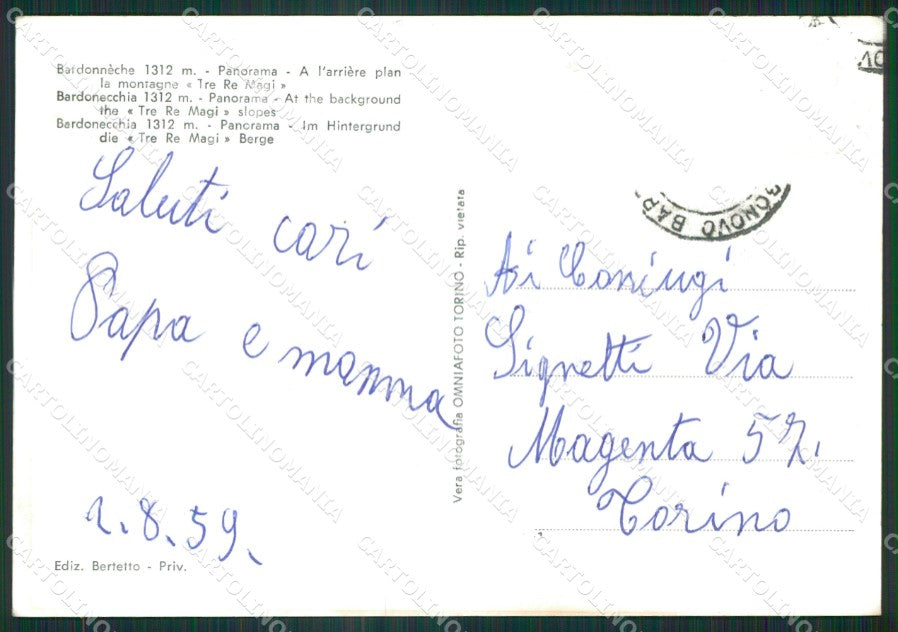 Bardonnèche 1312 m. - Panorama - A l'arrière plan
la montagne « Tre Re Magi »
Bardonecchia 1312 m. - Panorama - At the background
the « Tre Re Magi » slopes
Bardonecchia 1312 m. - Panorama - Im Hintergrund
die « Tre Re Magi » Berge
Saluti cari
Papa e mamma
1.8.59.
Ediz. Bertetto - Priv.
Vera fotografia OMNIAFOTO TORINO - Rip. vietata
10
BONOVO BAR
Ai Coniugi
Signetti Via
Magenta 57.
Torino
CARTOLINOMANIA